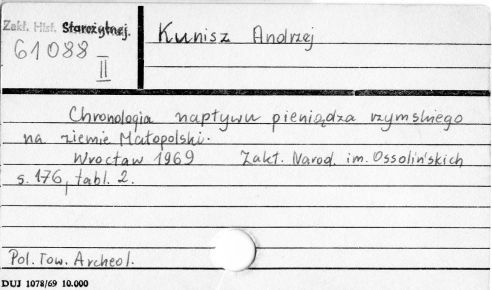 Zakł. Hist. Starożytnej.
61088
II
Kunisz Andrzej
Chronologia napływu pieniądza rzymskiego
na ziemie Małopolski.
Wrocław 1969 Zakł. Narod. im. Ossolińskich
s. 176, tabl. 2.
Pol. Tow. Archeol.
DUJ 1078/69 10.000